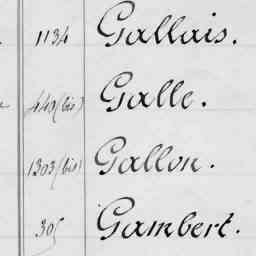 1134 Gallais.
449 (bis) Galle.
1303 (bis) Gallon.
305 Gambert.